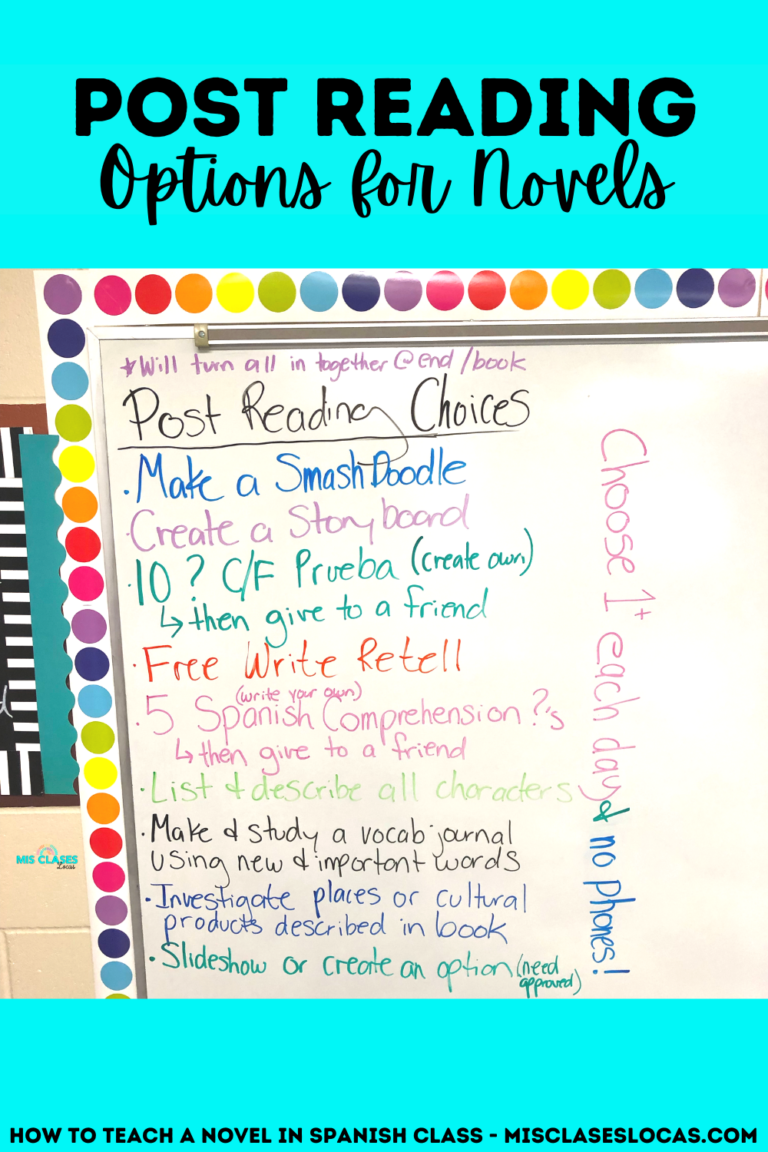 POST READING
Options for Novels
*Will turn all in together @ end/book
Post Reading Choices
·Make a SmashDoodle
·Create a Storyboard
·10 ? C/F Prueba (create own)
↳then give to a friend
·Free Write Retell
(write your own)
·5 Spanish Comprehension ?'s
↳then give to a friend
·List & describe all characters
·Make & study a vocab journal
using new & important words
·Investigate places or cultural
products described in book
·Slideshow or create an option (need
approved)
Choose 1+ each day & no phones!
MIS CLASES
Locas
HOW TO TEACH A NOVEL IN SPANISH CLASS - MISCLASESLOCAS.COM